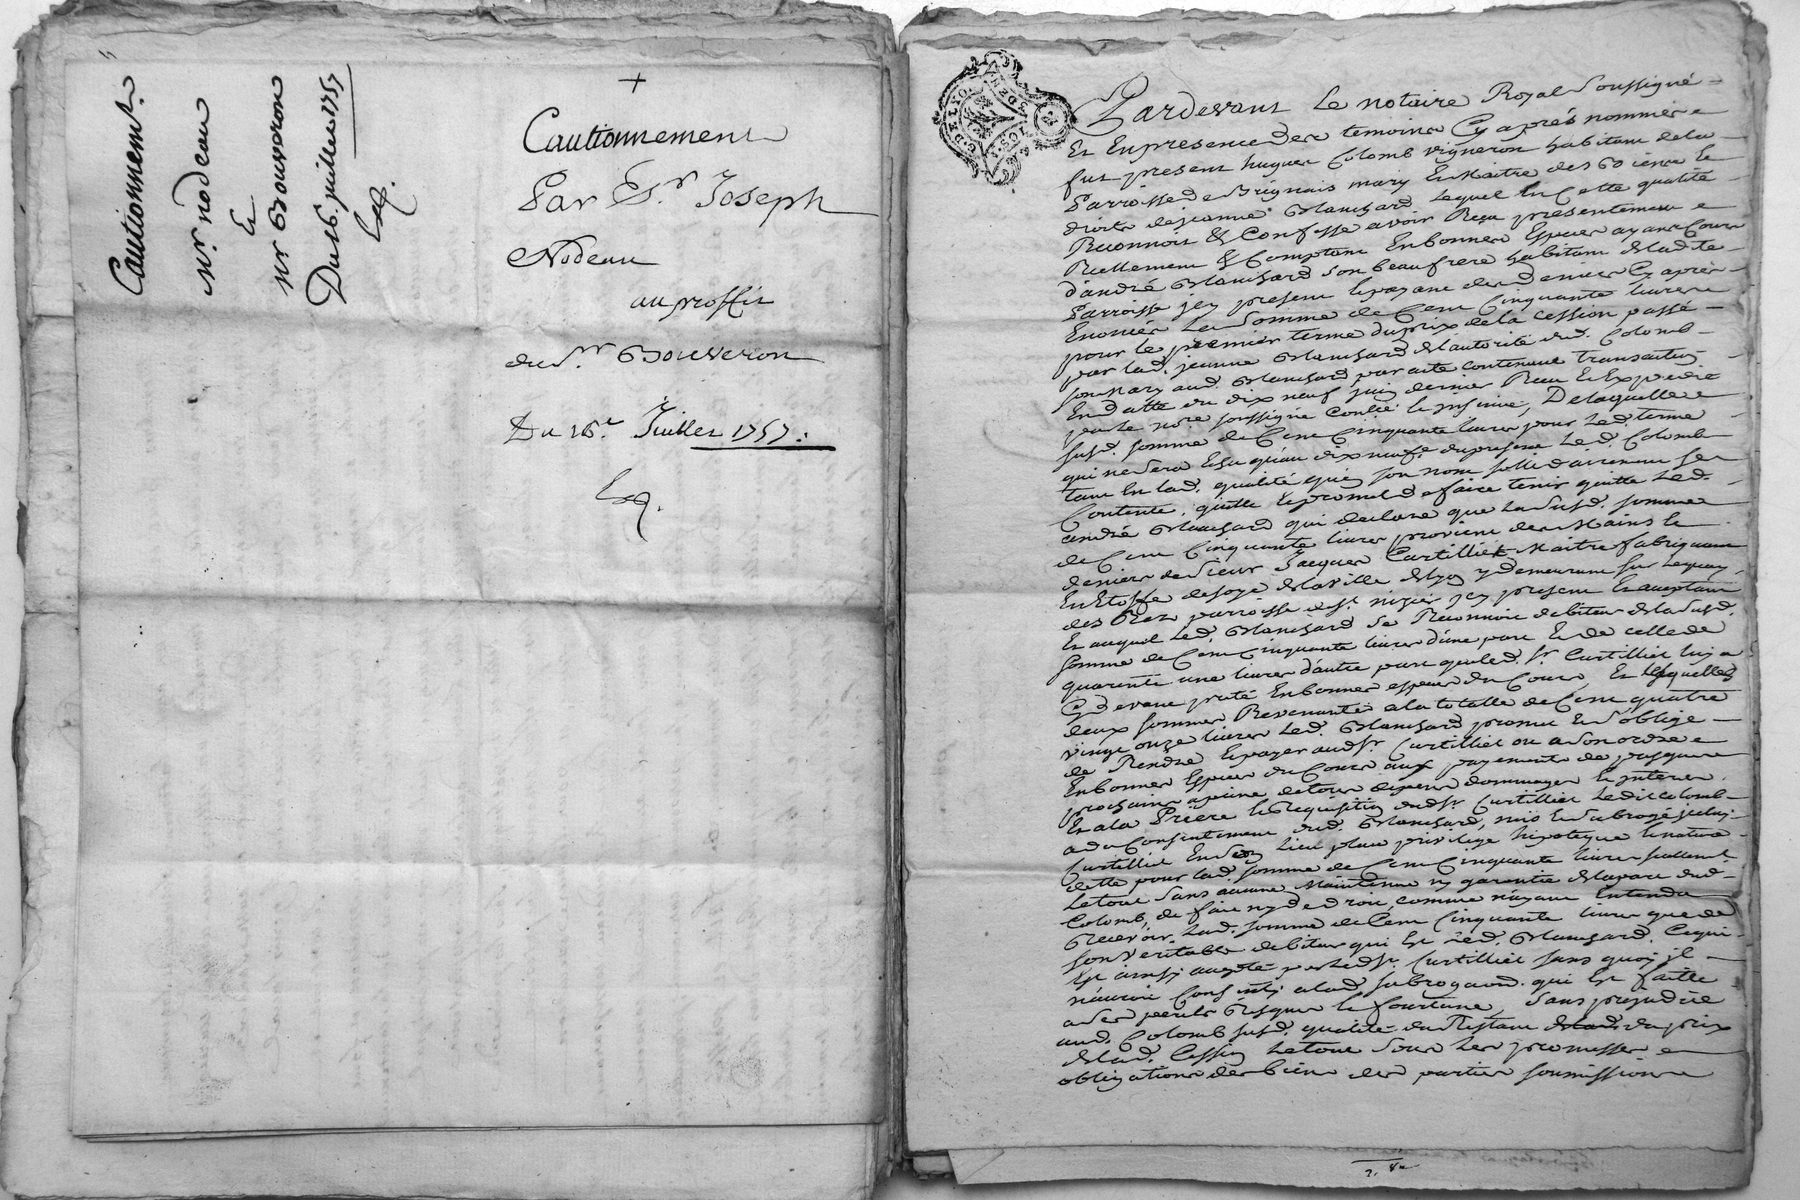 Cautionnement.
Sr. nodeau
Et
Sr Bouveron
Du 16. juillet 1757
Exp.
+
Cautionnement
Par Sr. Joseph
Nodeau
au proffit
du Sr. Bouveron
Du 16e. Juillet 1757.
Exp.
Pardevant Le notaire Royal Soussigné
Et En presence des temoins Cy après nommés
fut present hugues Colomb vigneron habitant de la
Parroisse de Brignais mary Et Maitre des biens Et
droits de jeanne Blanchard Lequel En Cette qualité
Reconnoit Et Confesse avoir Reçu presentement
Reellement Et Comptant En bonnes Especes ayant Cours
d'andré Blanchard Son beaufrere habitant de ladte
Parroisse jcy present Et payant des deniers Cy après
Enoncés La Somme de Cent Cinquante livres
pour le premier terme du prix de la cession passé
par lad. jeanne Blanchard de l'autorité dud. Colomb
son Mary aud. Blanchard par acte contenant transaction
En datte du dix neuf juin dernier Recu Et Expedié
par le nore soussigné Conlle Et jnsinué, De laquelle
susd. somme de Cent Cinquante livres pour led. terme
qui ne Sera Echu qu'au dix neuf du present Led. Colomb
tant En lad. qualité qu'en son nom sollidairement Se
Contente, quitte Et promet faire tenir quitte Led.
andré Blanchard qui declare que La Susd. somme
de Cent Cinquante livres provient des Mains Et
deniers de Sieur Jacques Curtilliet Maitre fabriquant
En Etoffe de soye de la ville de lyon y demeurant sur Le quay
des parroisse de St. nizier jcy present Et acceptant
Et auquel Led. Blanchard Se Reconnoit debiteur de la Susd.
somme de Cent Cinquante livres d'une part Et de celle de
quarente une livres d'autre part que led. Sr. Curtilliet luy a
Cy devant preté En bonnes especes du Cours, Et lesquelles
deux sommes Revenantes a la totalle de Cent quatre
vingt onze livres Led. Blanchard promet Et S'oblige
de Rendre Et payer aud Sr. Curtilliet ou a Son ordre
En bonnes Especes du Cours aux payements de
prochains a peine de tous depens dommages Et jnterets
Et a la Priere Et Requisition dud Sr. Curtilliet Ledit Colomb
a du Consentement dud. Blanchard, mis Et Subrogé jceluy
Curtilliet En Son Lieu place privilege hipoteque Et nature
dette pour lad. somme de Cent Cinquante livres seullement
Le tout Sans aucune Maintenue ny garentie de la part dud.
Colomb, de fait ny de droit, comme n'ayant Entendu
Recevoir Lad. somme de Cent Cinquante livres que de
son veritable debiteur qui Est Led. Blanchard. Ce qui
Est ainsy accepté par led Sr. Curtilliet sans quoy jl
n'auroit Consenty a lad subrogaon. qui Est faitte
a Ses perils Risques Et fortune, Sans prejudice
aud. Colomb susd. qualité du Restant du prix
de lad. Cession Le tout Sous Les promesses
obligations des biens des parties soumissions